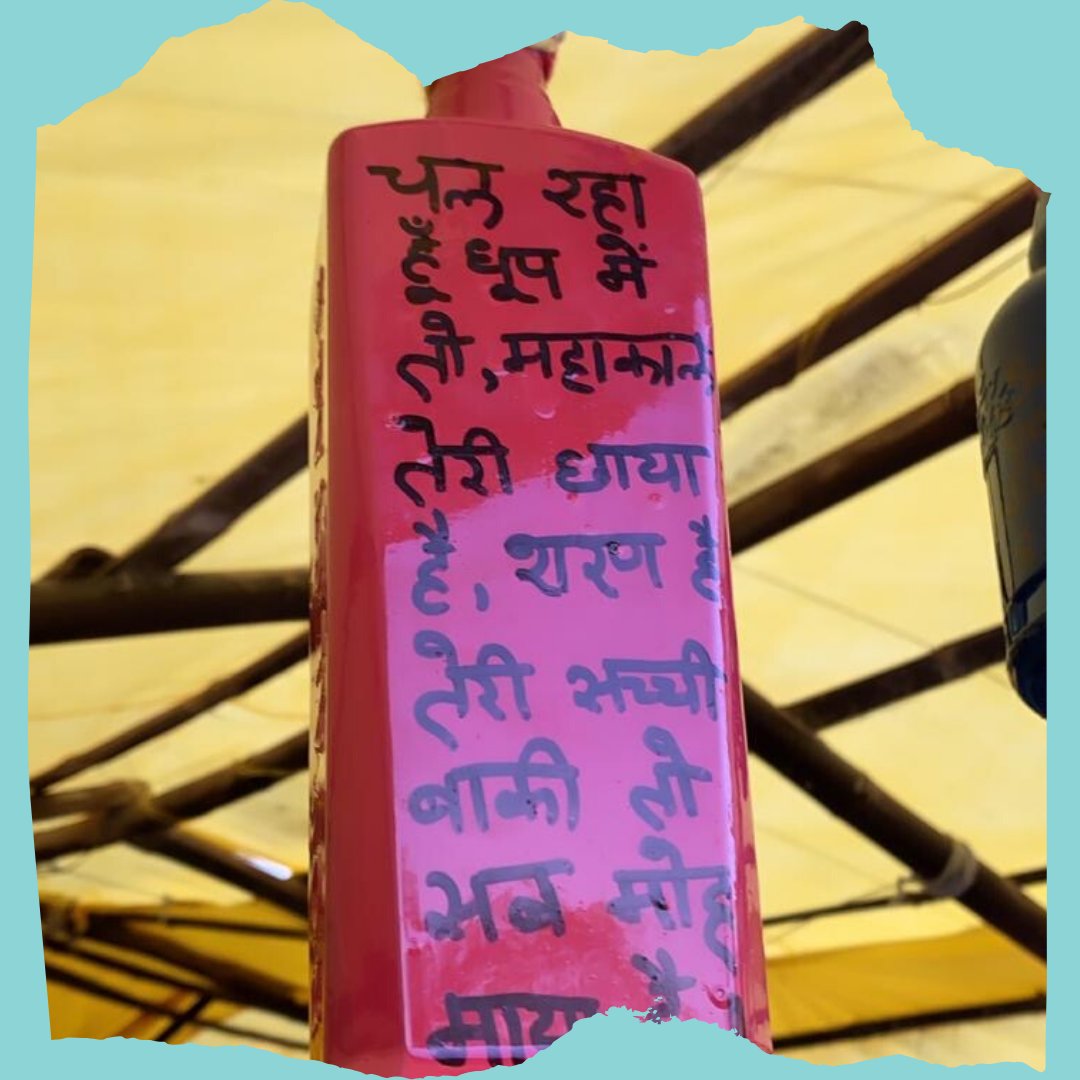 चल रहा
हूँ धूप में
तो, महाकाल
तेरी छाया
है, शरण है
तेरी सच्ची
बाकी तो
सब मोह
माया है